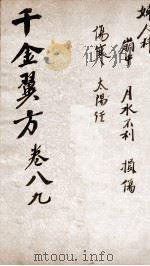 婦人科
崩中 月水不利 損傷
傷寒 太陽經
千金翼方 卷八九
www.mtoou.info
mtoou.com